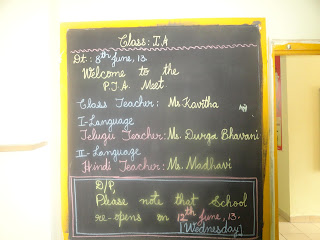 Class: I.A
Dt: 8th June, 13.
Welcome to the
P.T.A. Meet
Class Teacher: Ms. Kavitha
I-Language
Telugu Teacher: Ms. Durga Bhavani
II-Language
Hindi Teacher: Ms. Madhavi
D/P,
Please note that School
re-opens on 12th June, 13.
[Wednesday]